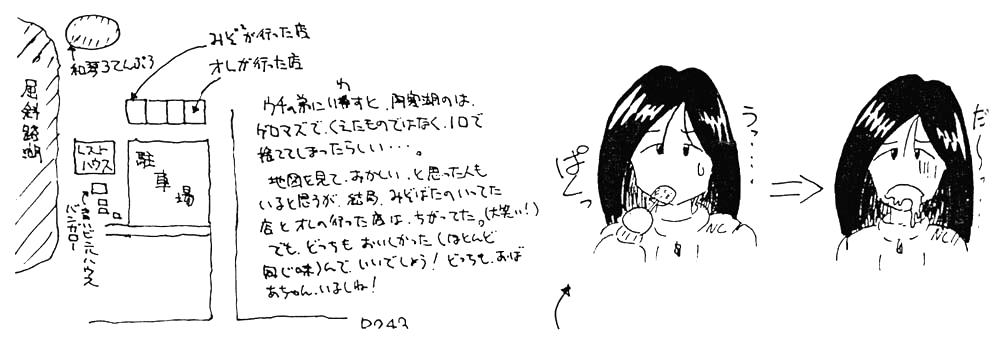 みぞが行った店
オレが行った店
和琴うてんぷろ
屈斜路湖
レスト
ハウス
駐車場
ビニルハウス
バンガロー
ウチの弟にいわすと、阿寒湖のは、
ゲロマズで、くえたものではなく、1口で
捨ててしまったらしい・・・。
地図を見て、おかしい、と思った人も
いると思うが、結局、みどばたのいってた
店とオレの行った店は、ちがってた。(大笑い!)
でも、どっちもおいしかった(ほとんど
同じ味)んで、いいでしょう!どっちも、おば
あちゃん、いるしね!
ぱくっ
うっ・・・・
NC
だ〜っ・・・
NC